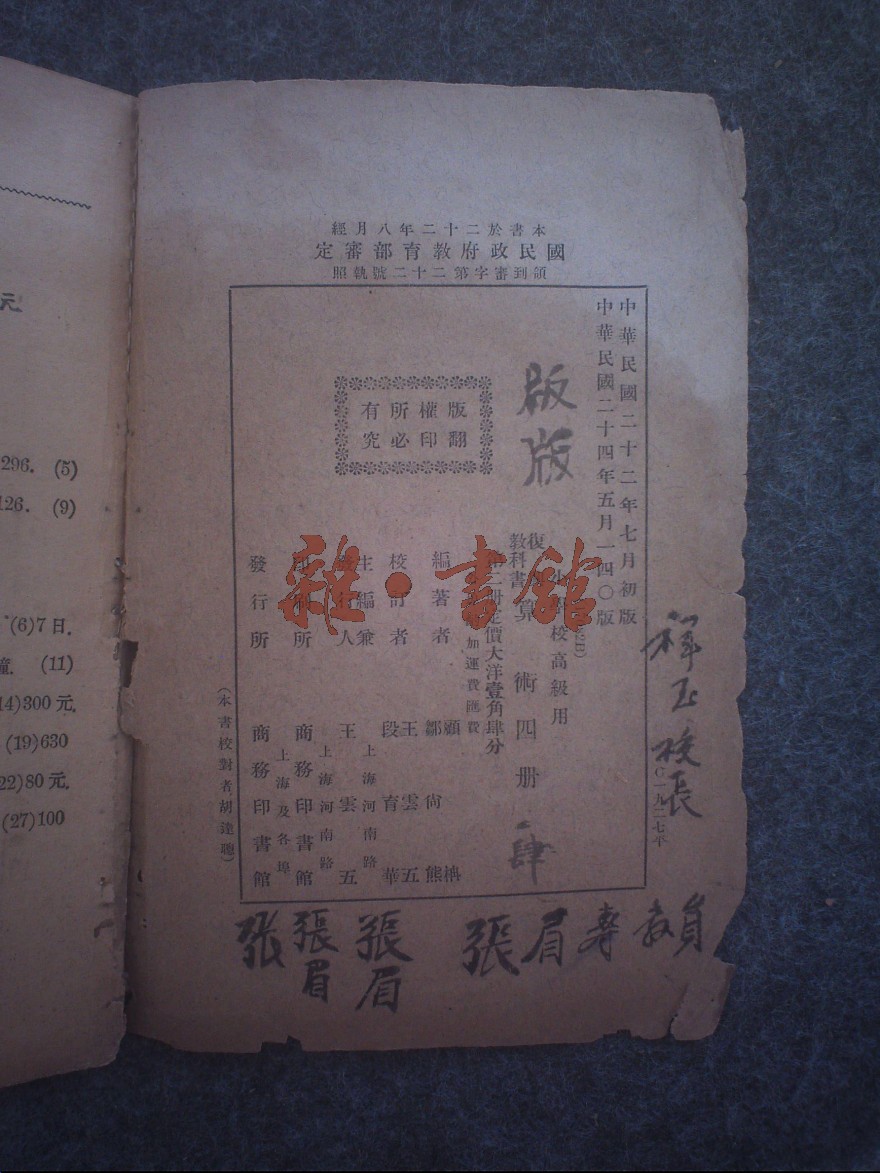 本書於二十二年八月經
國民政府教育部審定
領到審字第二十二號執照
中華民國二十二年七月初版
中華民國二十四年五月一四〇版
版版
版權所有
翻印必究
校高級用
教科書
算術四册
肆
册定價大洋壹角肆分
加運費匯費
編著者
顧楠
鄒尚熊
校訂者
王雲五
段育華
主編兼
行人
上海河南路
王雲五
印刷所
上海河南路
商務印書館
發行所
上海及各埠
商務印書館
(本書校對者胡達聰)
C一九二七平
校長
張眉壽教員
張眉
張眉
張
雜·書館
元
296. (5)
126. (9)
(6)7日.
(11)
14)300元.
(19)630
22)80元.
(27)100